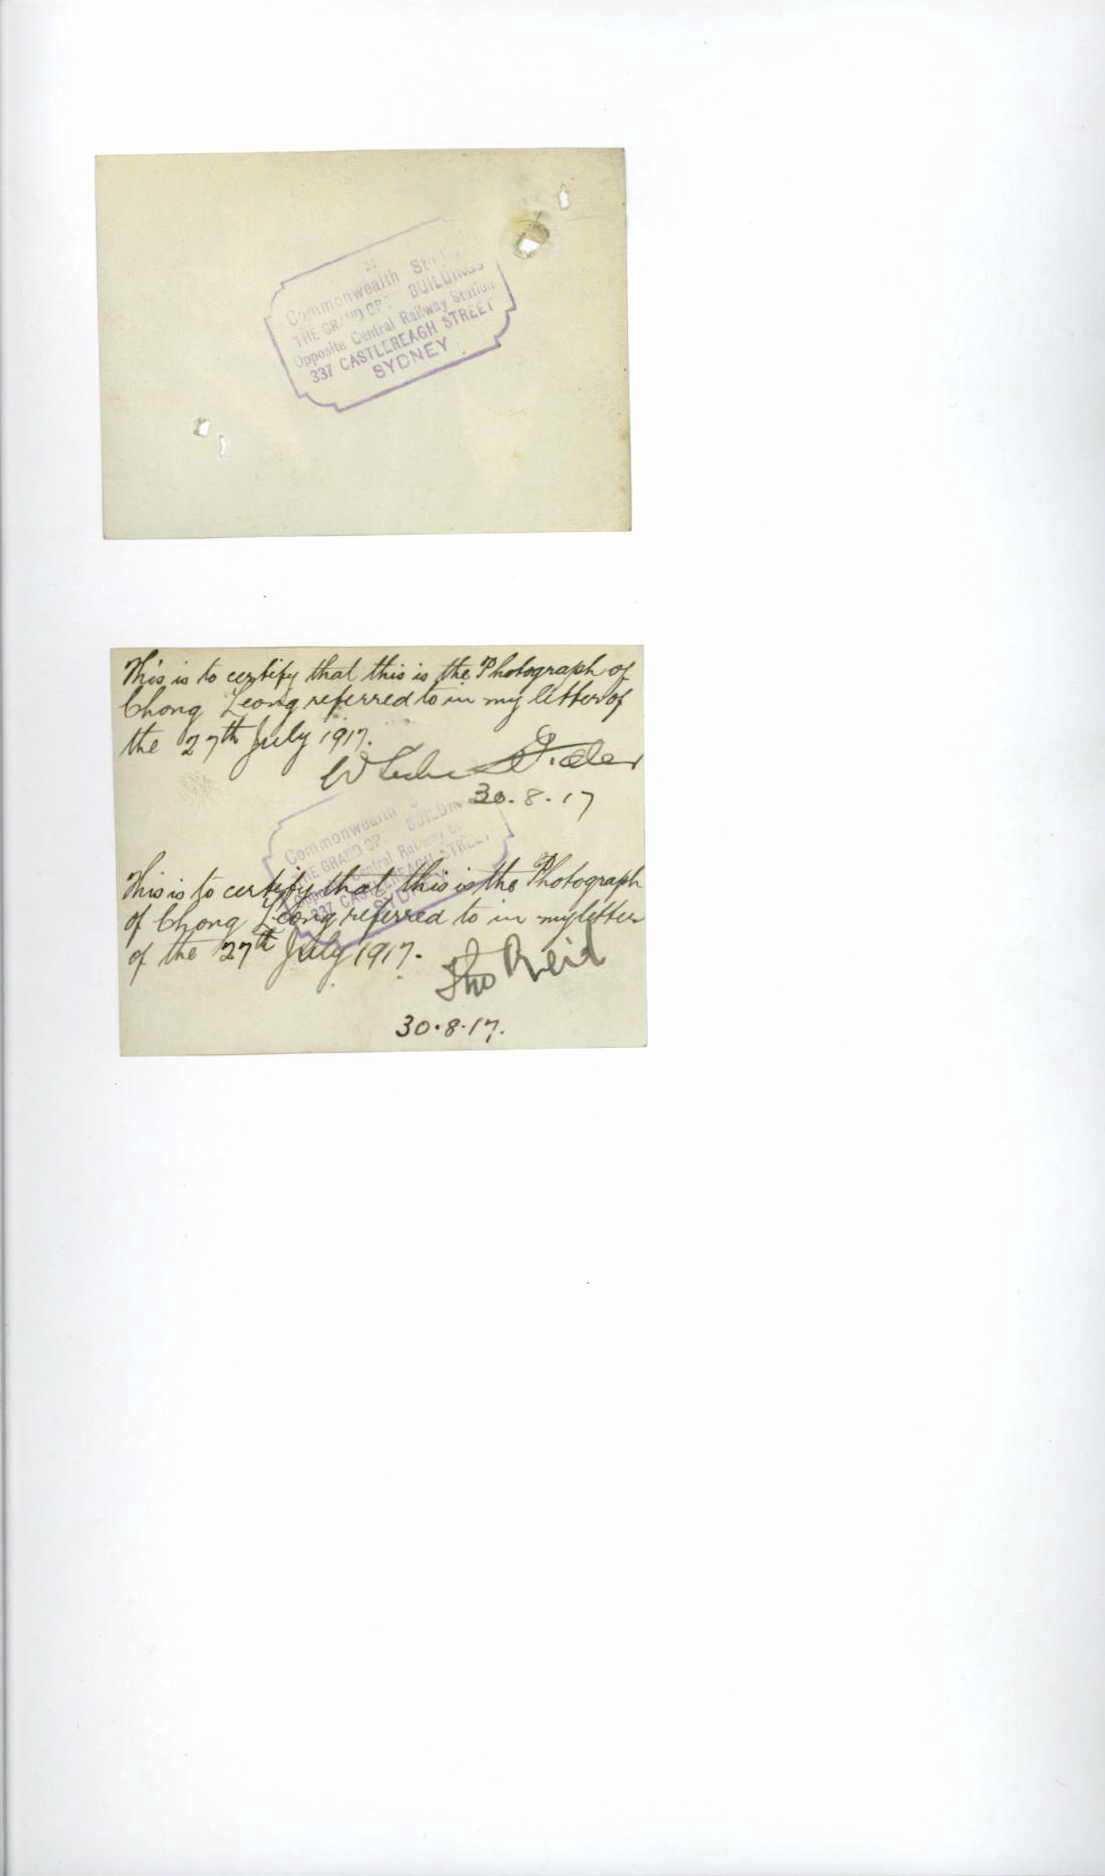 Commonwealth
THE GRAND BUILDINGS
Opposite Central Railway Station
337 CASTLEREAGH STREET
SYDNEY
This is to certify that this is the Photograph of
Chong Leong referred to in my letter of
the 27th July 1917.
30.8.17
Commonwealth
THE GRAND
Central Railway
337 CASTLEREAGH STREET
SYDNEY
This is to certify that this is the Photograph
of Chong Leong referred to in my letter
of the 27th July 1917.
Thos Reid
30.8.17.